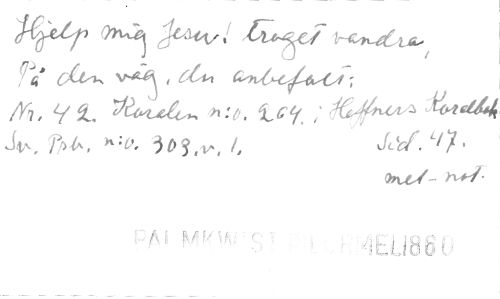 Hjelp mig Jesu! troget vandra,
På den väg, du anbefalt;
Nr. 42. Koralen n:o. 264. i Hæffners Koralbok
Sv. Psb. n:o. 303. v. 1. Sid. 47.
mel-not.